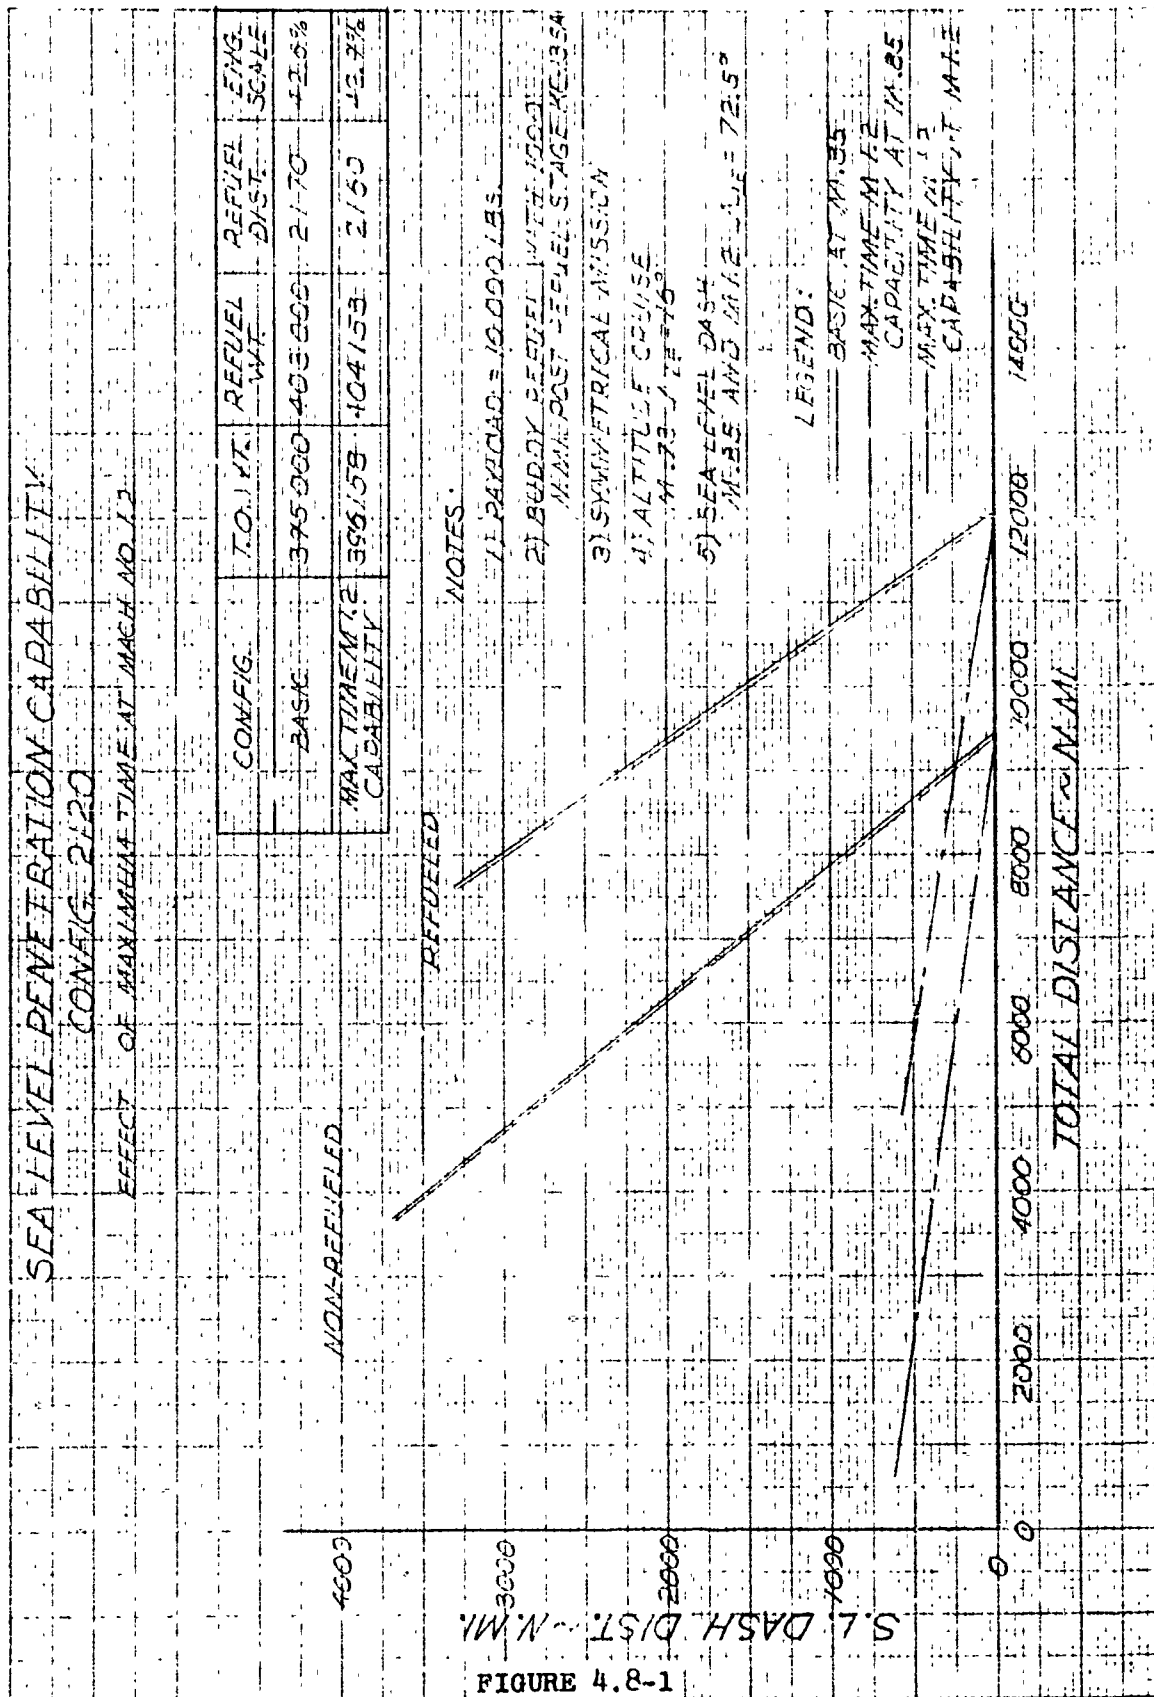 SEA LEVEL PENETRATION CAPABILITY
CONFIG. 2120
EFFECT OF MAXIMUM TIME AT MACH NO. 1.2
CONFIG. T.O. WT. REFUEL WT. REFUEL DIST. ENG. SCALE
BASIC 375000 403000 2170
MAX TIME M 1.2 CAPABILITY 396158 404153 2150
NOTES:
1) PAYLOAD = 10000 LBS.
2) BUDDY REFUEL WITH 1000
N.MI. POST REFUEL STAGE KC-135A
3) SYMMETRICAL MISSION
4) ALTITUDE CRUISE
M .73
5) SEA LEVEL DASH
M .85 AND M 1.2 = 72.5°
LEGEND:
BASIC AT M .85
MAX TIME M 1.2
CAPACITY AT M .85
MAX TIME M 1.2
CAPABILITY AT M 1.2
NON-REFUELED
REFUELED
S.L. DASH DIST. ~ N.MI.
4000
3000
2000
1000
0
0 2000 4000 6000 8000 10000 12000 14000
TOTAL DISTANCE ~ N.MI.
FIGURE 4.8-1